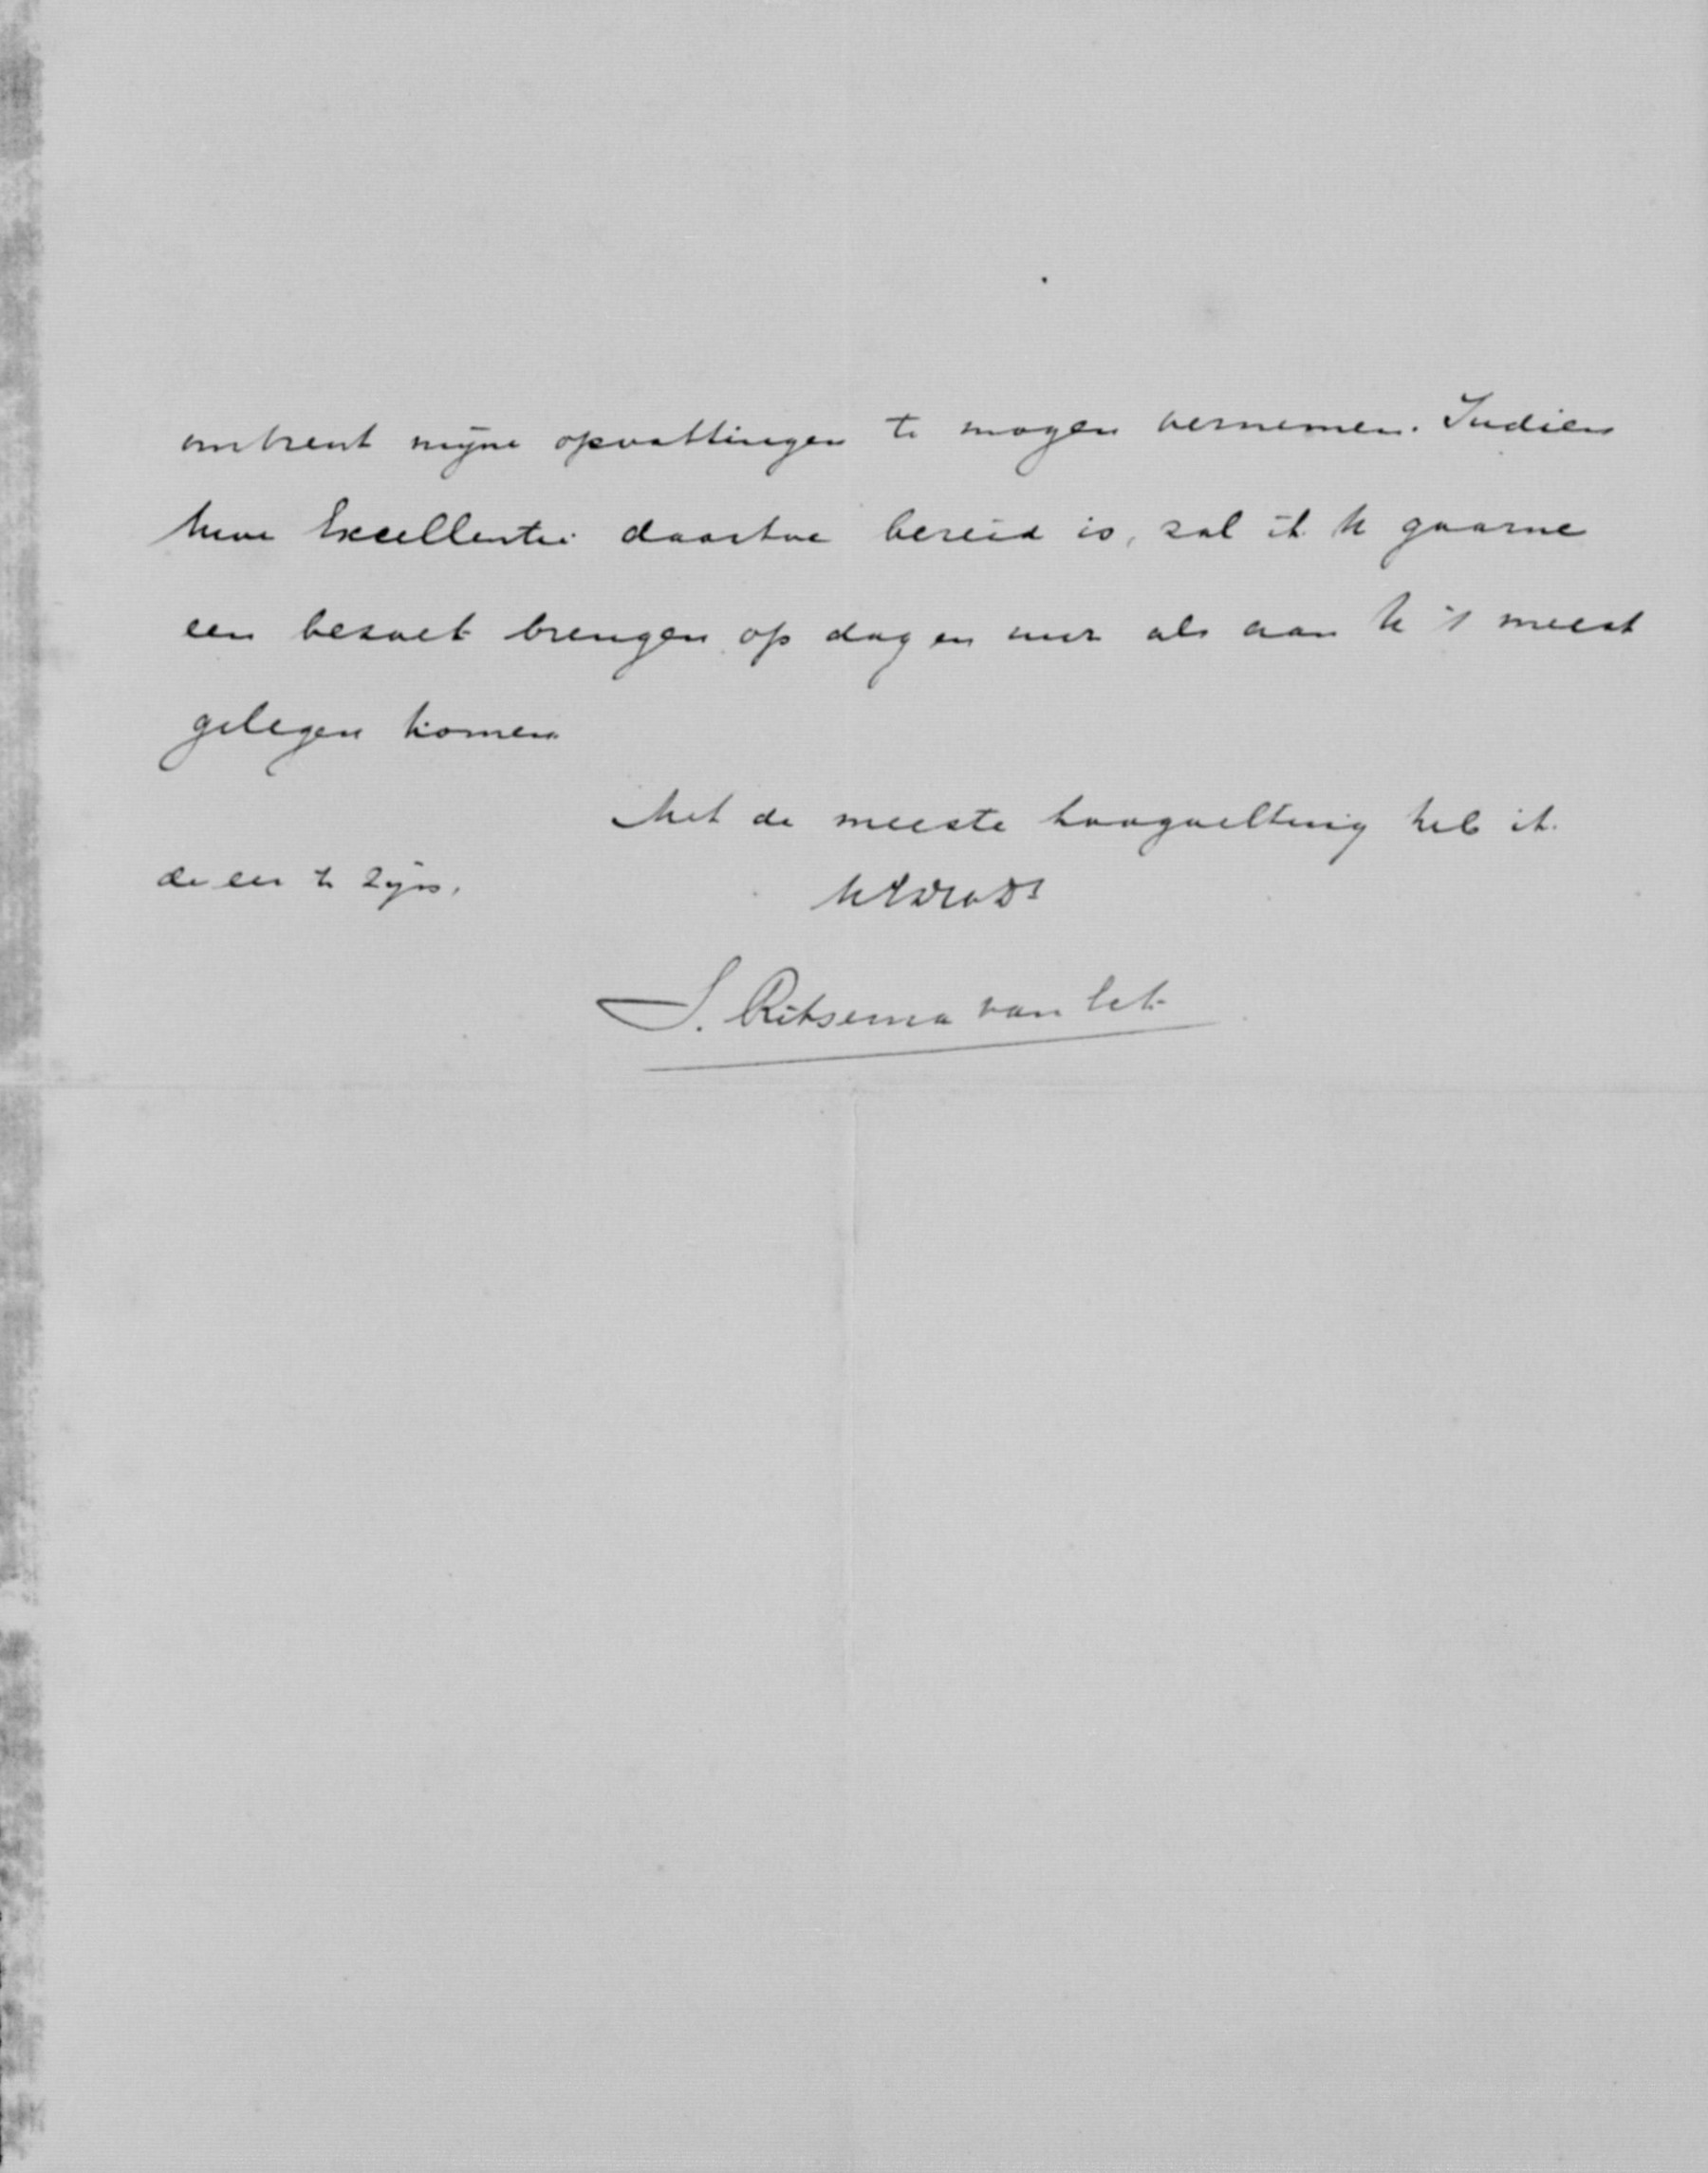 omtrent mijne opvattingen te mogen vernemen. Indien
Uwe Excellentie daartoe bereid is, zal ik U gaarne
een bezoek brengen op dag en uur als aan U 't meest
gelegen komen
Met de meeste hoogachting heb ik
de eer te zijn,
UEDwDr
S. Ritsema van Eck